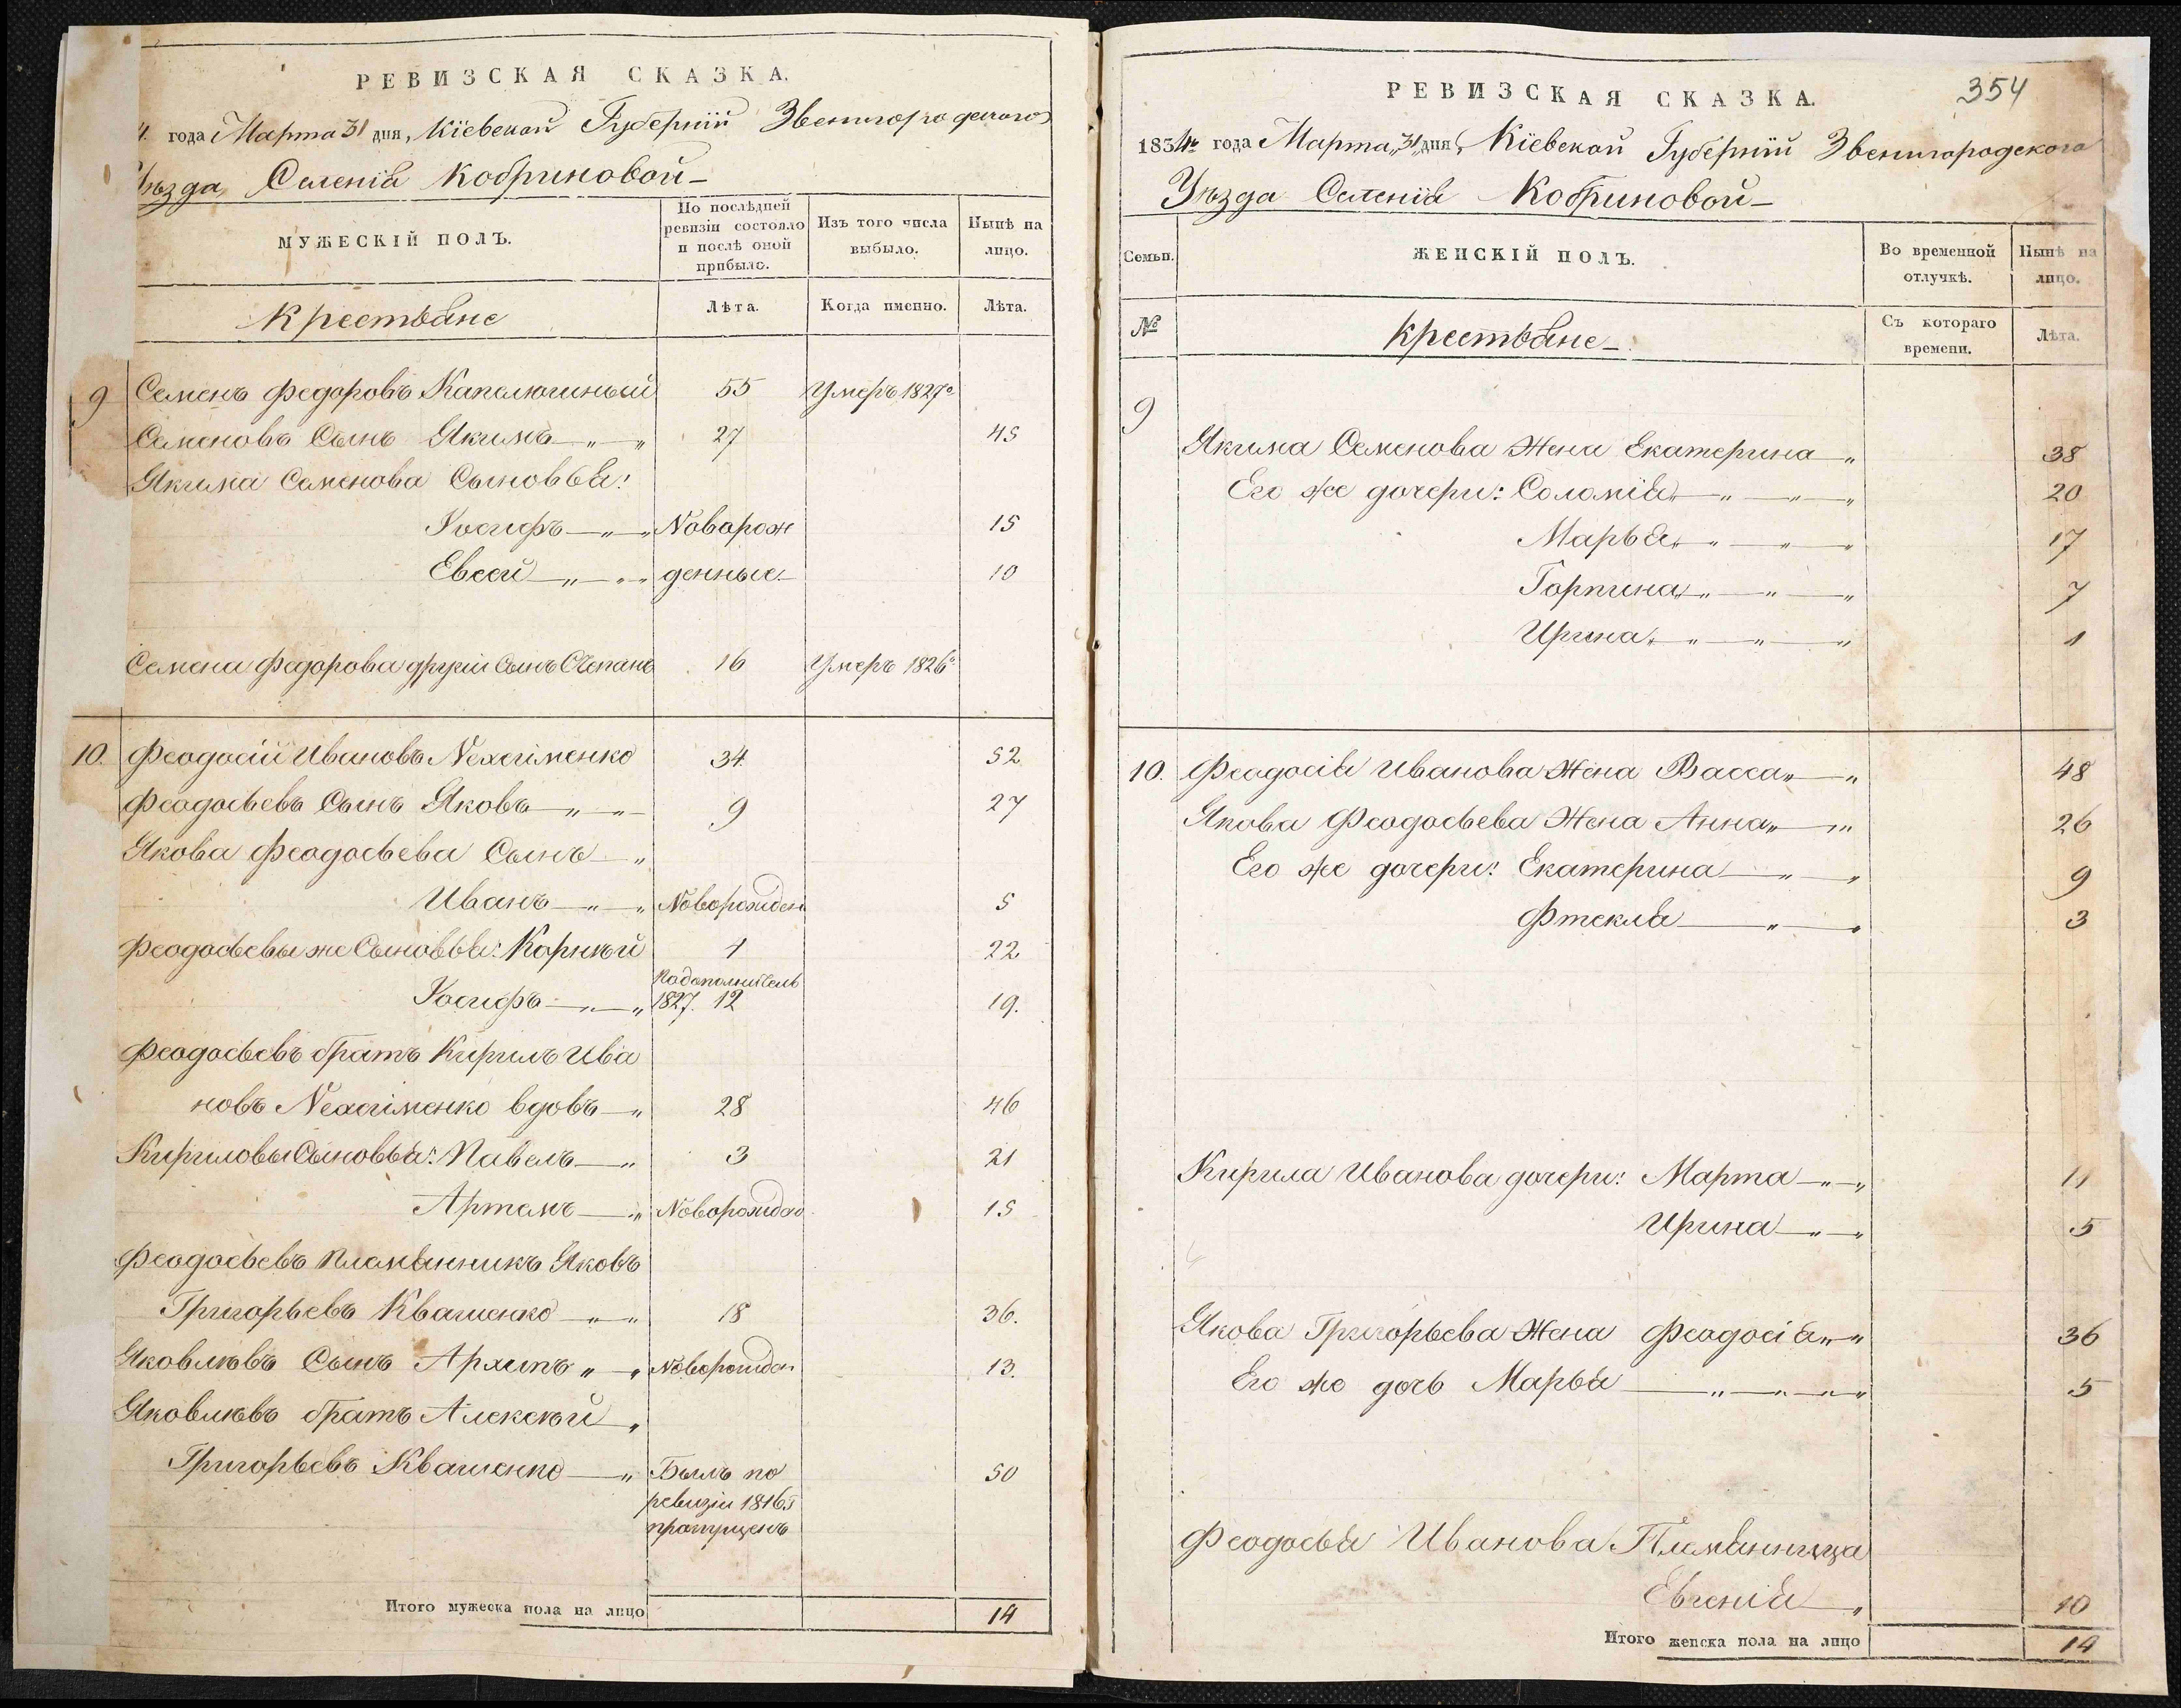 РЕВИЗСКАЯ СКАЗКА.
4. года Марта 31 дня, Кіевской Губерніи Звенигородского
Уѣзда, Селенія Кобриновой
МУЖЕСКІЙ ПОЛЪ.
По послѣдней ревизіи состояло и послѣ оной прибыло.
Изъ того числа выбыло.
Нынѣ на лицо.
Крестьяне
Лѣта.
Когда именно.
Лѣта.
9 Семенъ Федоровъ Капелюшный 55 Умеръ 1827о
Семеновъ Сынъ Якимъ 27 45
Якима Семенова Сыновья:
Іосифъ Новорож 15
Евсей денные 10
Семена Федорова другій Сынъ Степанъ 16 Умеръ 1826о
10. Феодосій Ивановъ Нехгіменко 34 52
Феодосьевъ Сынъ Яковъ 9 27
Якова Феодосьева Сынъ
Иванъ Новорожден 5
Феодосьевы же Сыновья: Корнѣй 1 22
По дополнитель
Іосифъ 1827. 12 19.
Феодосьевъ братъ Кирилъ Ива
новъ вдовъ 28 46
Кириловы Сыновья: Павелъ 3 21
Артемъ Новорожден 15
Феодосьевъ Племянникъ Яковъ
Григорьевъ Квашенко 18 36.
Яковлѣвъ Сынъ Архипъ Новорожден 13.
Яковлѣвъ братъ Алексѣй
Григорьевъ Квашенко Былъ по 50
ревизіи 1816г
пропущенъ
Итого мужеска пола на лицо 14
354
РЕВИЗСКАЯ СКАЗКА.
1834 года Марта 31 дня, Кіевской Губерніи Звенигородского
Уѣзда Селенія Кобриновой
Семьи.
ЖЕНСКІЙ ПОЛЪ.
Во временной отлучкѣ.
Нынѣ на лицо.
№
Крестьяне
Съ котораго времени.
Лѣта.
9
Якима Семенова Жена Екатерина 38
Его же дочери: Соломія 20
Марья 17
Горпина 7
Ирина 1
10. Феодосія Иванова Жена Васса 48
Якова Феодосьева Жена Анна 26
Его же дочери: Екатерина 9
Фтекля 3
Кирила Иванова дочери: Марта 11
Ирина 5
Якова Григорьева Жена Феодосія 36
Его же дочь Марья 5
Феодосья Иванова Племянница
Евгенія 10
Итого женска пола на лицо 14